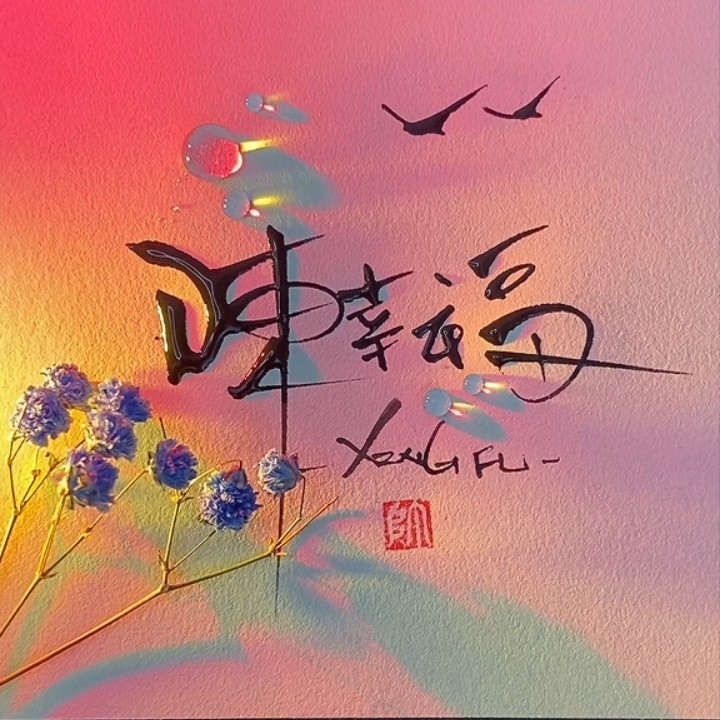 陳幸福
XingFu-
帥